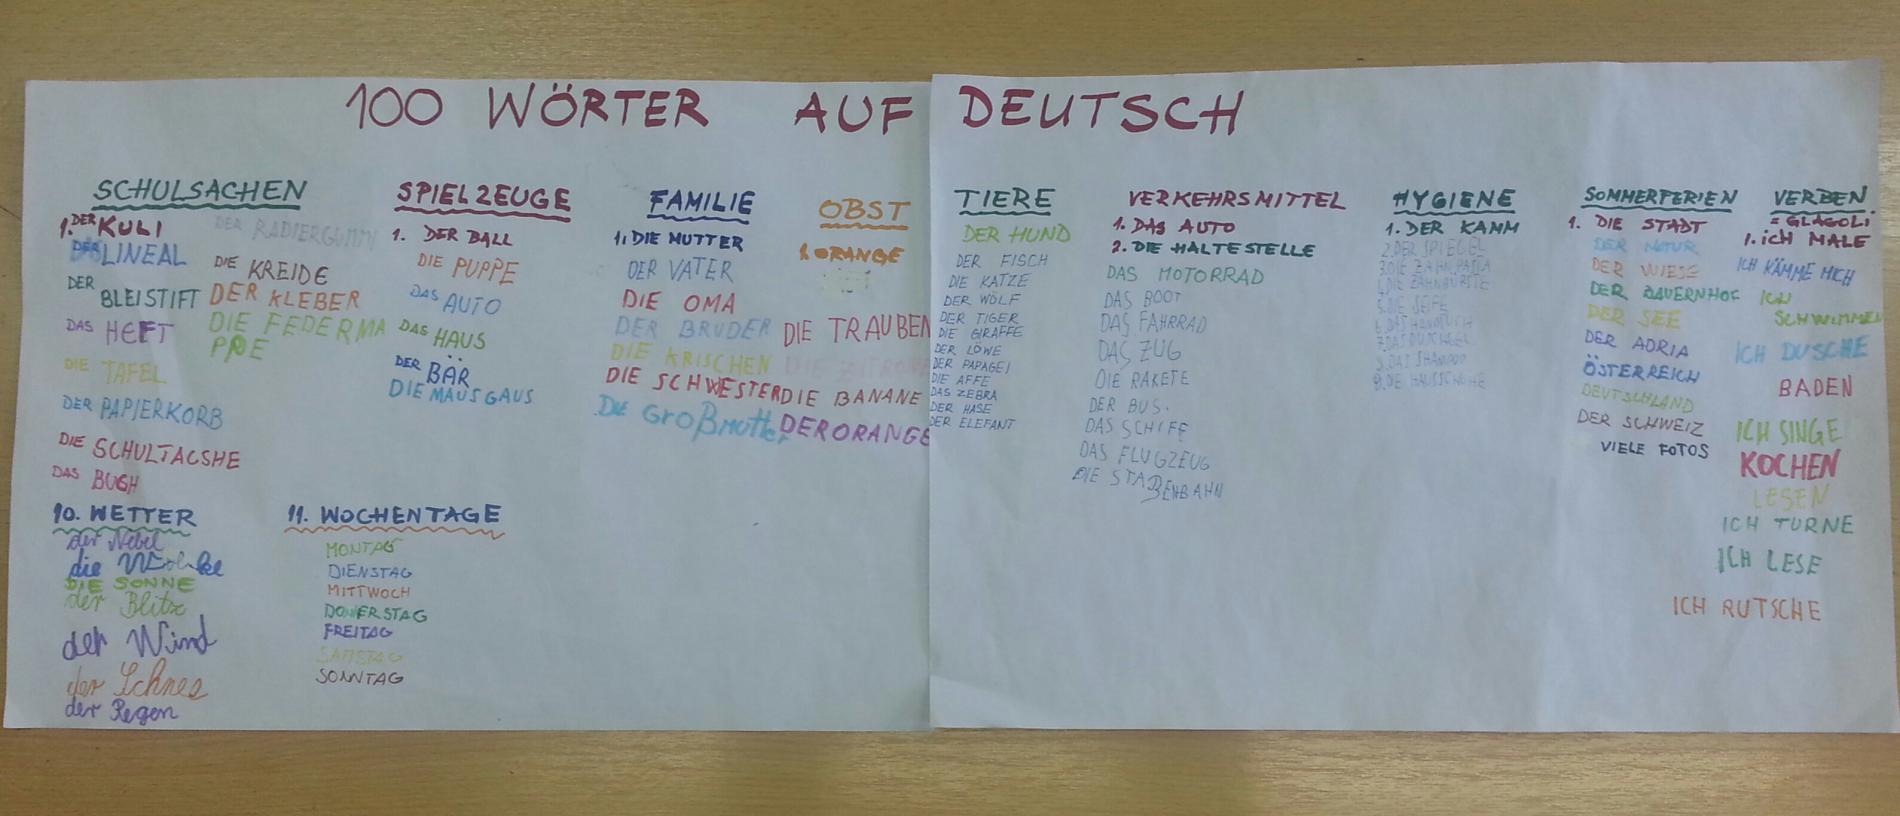 100 WÖRTER AUF DEUTSCH
SCHULSACHEN
1. DER KULI
DER LINEAL
DER BLEISTIFT
DAS HEFT
DIE TAFEL
DER PAPIERKORB
DIE SCHULTACSHE
DAS BUGH
DER RADIERGUMMI
DIE KREIDE
DER KLEBER
DIE FEDERMA
PPE
SPIELZEUGE
1. DER BALL
DIE PUPPE
DAS AUTO
DAS HAUS
DER BÄR
DIE MAUS GAUS
FAMILIE
1. DIE MUTTER
DER VATER
DIE OMA
DER BRUDER
DIE KRISCHEN
DIE SCHWESTER
DIE GROßMUTTER
OBST
1. ORANGE
DIE TRAUBEN
DIE ZITRONE
DIE BANANE
DER ORANGE
TIERE
DER HUND
DER FISCH
DIE KATZE
DER WÖLF
DER TIGER
DIE GIRAFFE
DER LÖWE
DER PAPAGEI
DIE AFFE
DAS ZEBRA
DER HASE
DER ELEFANT
VERKEHRSMITTEL
1. DAS AUTO
2. DIE HALTESTELLE
DAS MOTORRAD
DAS BOOT
DAS FAHRRAD
DAS ZUG
DIE RAKETE
DER BUS.
DAS SCHIFF
DAS FLUGZEUG
DIE STAßENBAHN
HYGIENE
1. DER KAMM
2. DER SPIEGEL
3. DIE ZAHNPASTA
4. DIE ZAHNBÜRSTE
5. DIE SEIFE
6. DAS HANDTUCH
7. DAS DUSCHGEL
8. DAS SHAMPOO
9. DIE HAUSSCHUHE
SOMMERFERIEN
1. DIE STADT
DER NATUR
DER WIESE
DER BAUERNHOF
DER SEE
DER ADRIA
ÖSTERREICH
DEUTSCHLAND
DER SCHWEIZ
VIELE FOTOS
VERBEN
= GLAGOLI
1. ICH MALE
ICH KÄMME MICH
ICH
SCHWIMMEN
ICH DUSCHE
BADEN
ICH SINGE
KOCHEN
LESEN
ICH TURNE
ICH LESE
ICH RUTSCHE
10. WETTER
der Nebel
die Wolke
DIE SONNE
der Blitz
der Wind
der Schnee
der Regen
11. WOCHENTAGE
MONTAG
DIENSTAG
MITTWOCH
DONERSTAG
FREITAG
SAMSTAG
SONNTAG